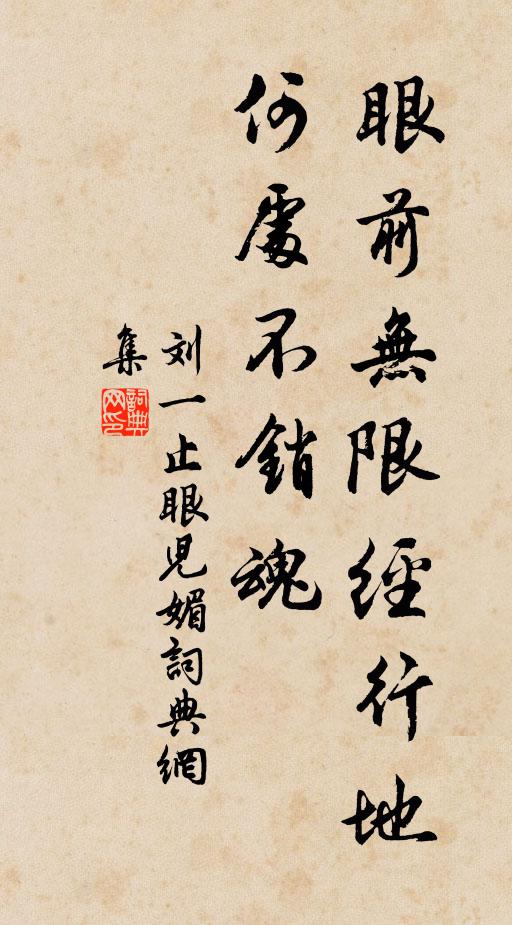 眼前無限經行地
何處不銷魂
刘一止眼児媚詞典網
集
詞典網印